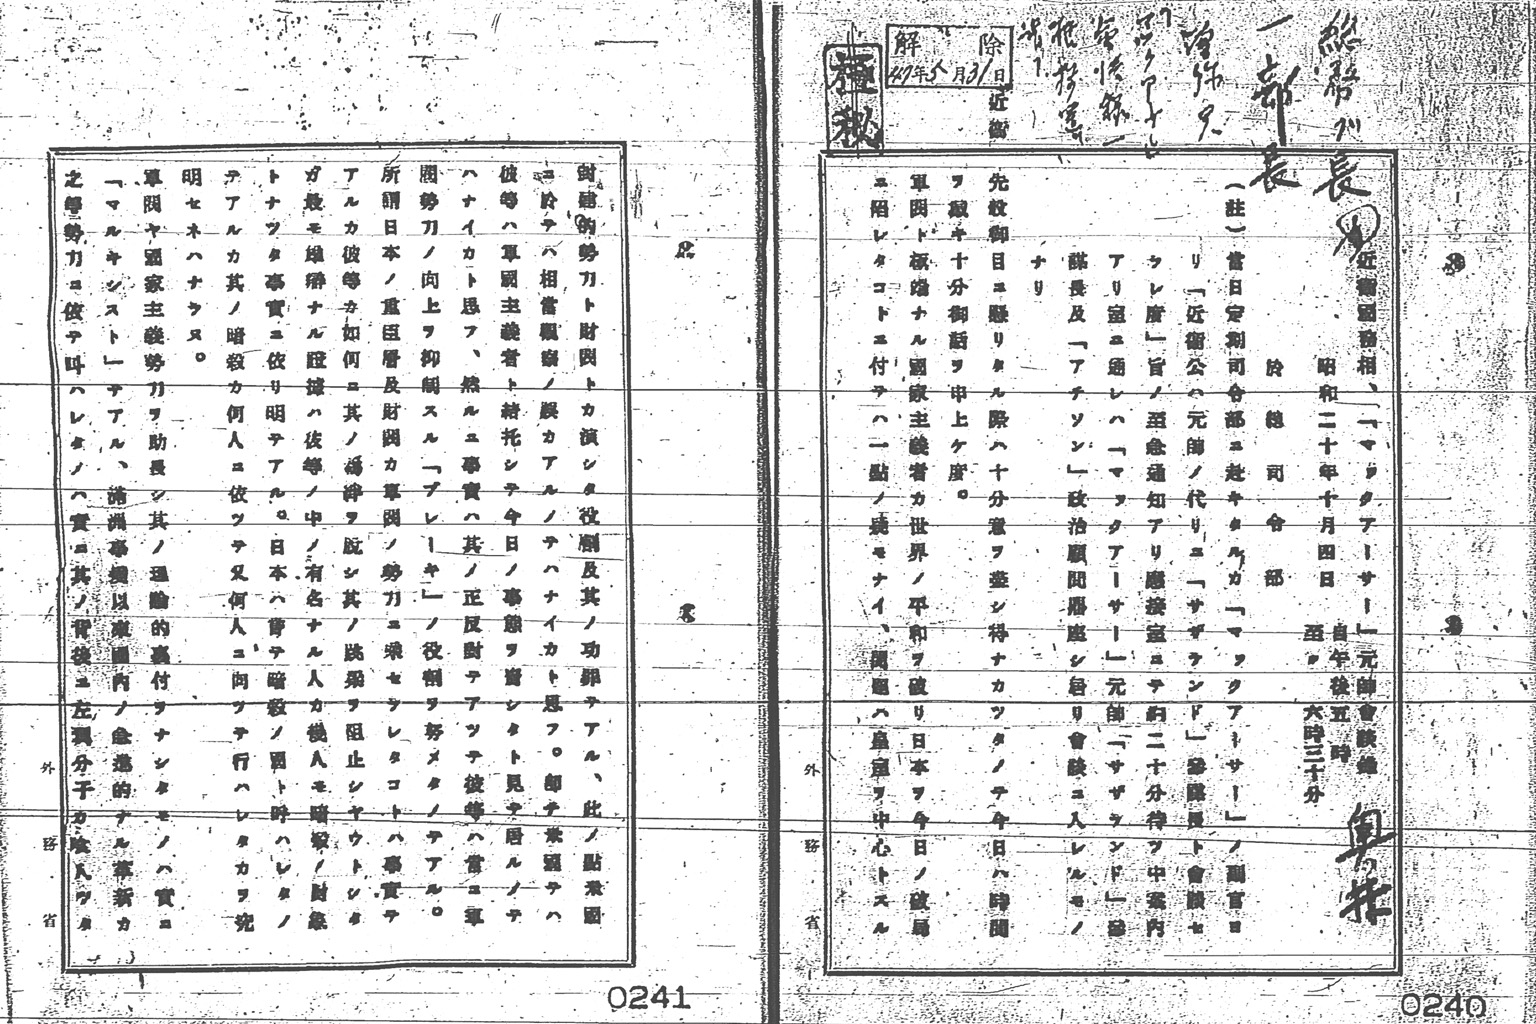 総務部長
一部長
極秘
解除
47年5月31日
近衛國務相、「マックアーサー」元帥會談錄
奥村
昭和二十年十月四日
自午後五時
至〃六時三十分
於總司令部
(註)當日定期司令部ニ赴キタルカ「マックアーサー」ノ副官ヨ
リ「近衞公ハ元帥ノ代リニ「サザランド」參謀長ト會談セ
ラレ度」旨ノ至急通知アリ應接室ニテ約二十分待ツ中案内
アリ室ニ通レハ「マックアーサー」元帥「サザランド」參
謀長及「アチソン」政治顧問鼎座シ居リ會談ニ入レルモノ
ナリ
先般御目ニ懸リタル際ハ十分意ヲ盡シ得ナカツタノテ今日ハ時間
ヲ戴キ十分御話ヲ申上ケ度。
軍閥ト極端ナル國家主義者カ世界ノ平和ヲ破リ日本ヲ今日ノ破局
ニ陷レタコトニ付テハ一點ノ疑モナイ、問題ハ皇室ヲ中心トスル
外務省
0240
封建的勢力ト財閥トカ演シタ役割及其ノ功罪テアル、此ノ點米國
ニ於テハ相當觀察ノ誤カアルノテハナイカト思フ。卽チ米國テハ
彼等ハ軍國主義者ト結托シテ今日ノ事態ヲ齎シタト見テ居ルノテ
ハナイカト思フ、然ルニ事實ハ其ノ正反對テアツテ彼等ハ常ニ軍
閥勢力ノ向上ヲ抑制スル「ブレーキ」ノ役割ヲ努メタノテアル。
所謂日本ノ重臣層及財閥カ軍閥ノ勢力ニ乘セラレタコトハ事實テ
アルカ彼等カ如何ニ其ノ羈絆ヲ脫シ其ノ跳梁ヲ阻止シヤウトシタ
カ最モ雄辯ナル證據ハ彼等ノ中ノ有名ナル人カ幾人モ暗殺ノ對象
トナツタ事實ニ依リ明テアル。日本ハ嘗テ暗殺ノ國ト呼ハレタノ
テアルカ其ノ暗殺カ何人ニ依ツテ又何人ニ向ツテ行ハレタカヲ究
明セネハナラヌ。
軍閥ヤ國家主義勢力ヲ助長シ其ノ理論的裏付ヲナシタモノハ實ニ
「マルキシスト」テアル、滿洲事變以來國內ノ急進的ナル革新カ
之等勢力ニ依テ叫ハレタノハ實ニ其ノ背後ニ左翼分子カ喰入ツタ
外務省
0241